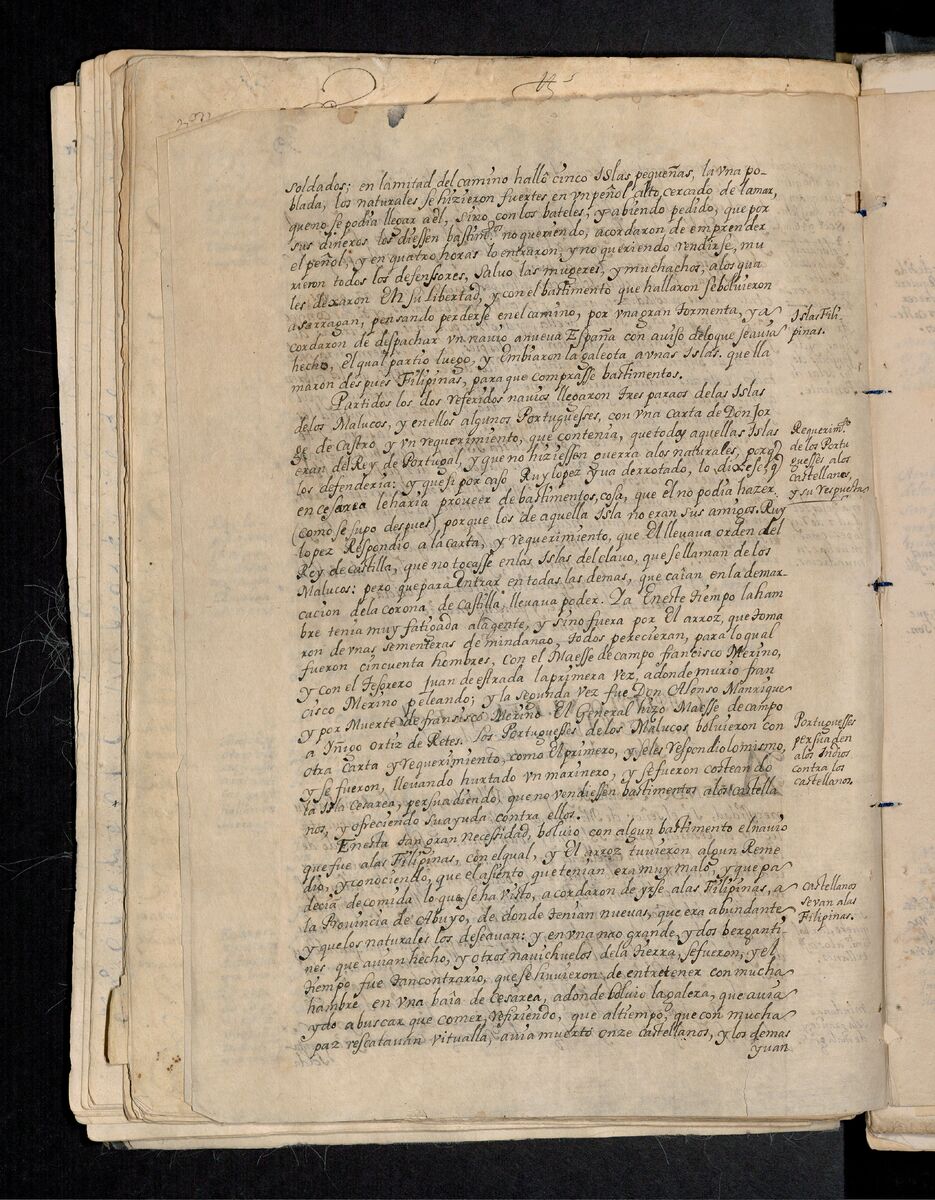 soldados; en lamitad del camino halló cinco Islas pequeñas, la vna po-
blada, los naturales se hizieron fuertes en vn peñol alto, cercado de la mar,
que no se podia llegar a el, sino con los bateles, y abiendo pedido, que por
sus dineros los diessen bastimto. no queriendo, acordaron de emprender
el peñol, y en quatro horas lo entraron, y no queriendo rendirse, mu
rieron todos los defenssores, salvo las mugeres, y muchachos, alos qua
les dexaron En su libertad, y con el bastimento que hallaron se boluieron
a sarragan, pensando perderse en el camino, por vna gran tormenta, y a
cordaron de despachar vn navio a nueva España con aviso de loque se avia
hecho, el qual partio luego, y Embiaron la galeota a vnas Islas. que lla
maron despues Filipinas, para que comprasse bastimentos.
Islas Fili-
pinas.
Partidos los dos referidos navios llegaron tres paraos de las Islas
delos Malucos, y en ellos algunos Portuguesses, con vna carta de Don Jor
ge de Castro, y vn requerimiento, que contenia, que todas aquellas Islas
eran del Rey de Portugal, y que no hiziessen guerra alos naturales, porq
los defenderia: y que si por caso Ruy lopez yua derrotado, lo dixese, q
en cesarea le haria proveer de bastimentos, cosa, que el no podia hazer
(como se supo despues) porque los de aquella Isla no eran sus amigos. Ruy
lopez Respondio a la carta, y requerimiento, que El llevava orden del
Rey de Castilla, que no tocasse en las Islas del clavo, que se llaman de los
Malucos: pero que para Entrar en todas las demas, que caian en la demar-
cacion de la corona de Castilla, llevava poder. Ya En este tiempo la ham
bre tenia muy fatigada ala gente, y sino fuera por El arroz, que toma
ron de vnas sementeras de mindanao, todos perecieran, para lo qual
fueron cincuenta hombres, con el Maesse de campo francisco Merino,
y con el Tesorero Juan de estrada la primera vez, adonde murio fran
cisco Merino peleando; y la segunda vez fue Don Alonso Manrique
y por Muerte de francisco Merino El General hizo Maesse de campo
a Yñigo ortiz de Retes. Los Portuguesses de los Malucos, bolvieron con
otra carta y requerimiento, como El primero, y seles respondio lo mismo,
y se fueron, llevando hurtado vn marinero, y se fueron costeando
la Isla Cesarea, persuadiendo, que no vendiessen bastimentos a los castella
nos, y ofreciendo su ayuda contra ellos.
Requerimto.
de los Portu
guesses alos
castellanos,
y su respuesta
Portuguesses
persuaden
alos Indios
contra los
castellanos.
En esta tan gran necessidad, bolvio con algun bastimento el navio
que fue a las Filipinas, con el qual, y El arroz tuvieron algun Reme
dio, y conociendo, que el asiento que tenian era muy malo, y que pa
decia de comida lo que se ha visto, acordaron de yrse a las Filipinas, a
la Provincia de Abuyo, de donde tenian nuevas, que era abundante
y que los naturales los deseavan: y en vna nao grande, y dos berganti-
nes que avian hecho, y otros navichuelos de la tierra, se fueron, y el
tiempo fue tan contrario, que se huvieron de entretener con mucha
hambre en vna baîa de Cesarea, adonde bolvio la galera, que avia
ydo a buscar que comer, refiriendo, que al tiempo, que con mucha
paz rescatavan vitualla, avia muerto onze castellanos, y los demas
yuan
castellanos
se van alas
Filipinas.